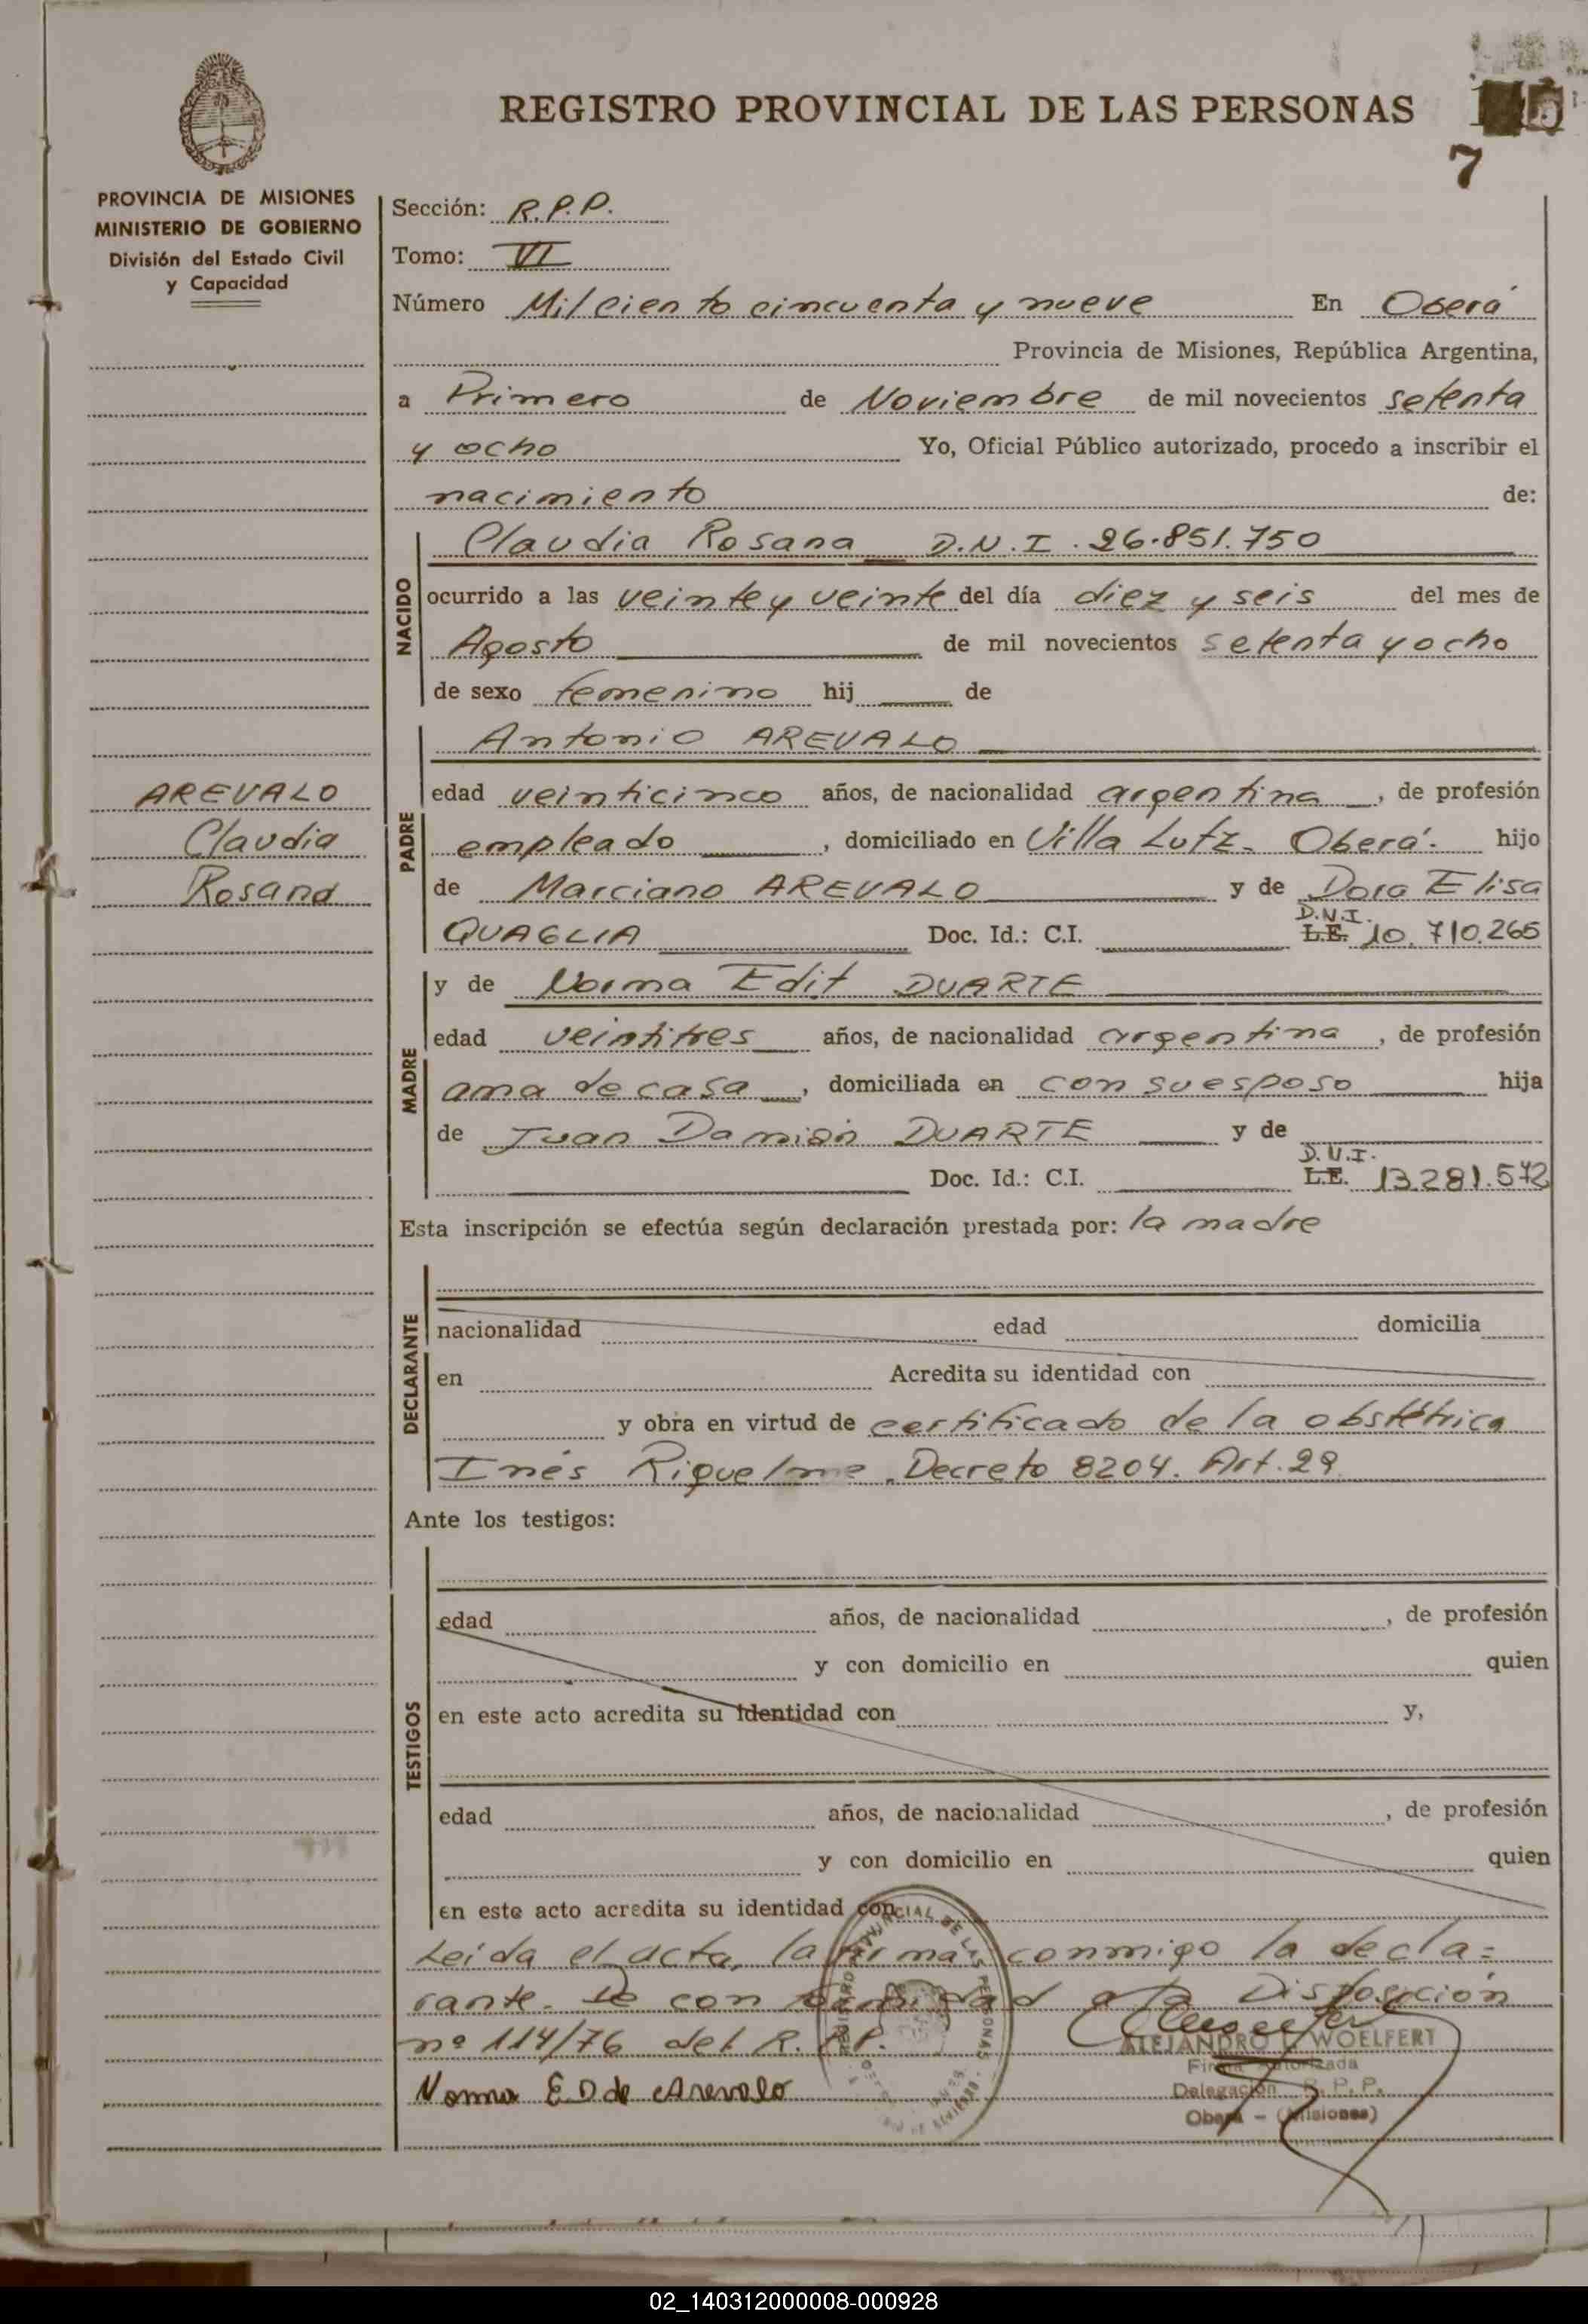 REGISTRO PROVINCIAL DE LAS PERSONAS
7
PROVINCIA DE MISIONES
MINISTERIO DE GOBIERNO
División del Estado Civil
y Capacidad
Sección: R.P.P.
Tomo: VI
Número Mil ciento cincuenta y nueve En Oberá
Provincia de Misiones, República Argentina,
a Primero de Noviembre de mil novecientos setenta
y ocho Yo, Oficial Público autorizado, procedo a inscribir el
nacimiento de:
NACIDO
Claudia Rosana D.N.I. 26.851.750
ocurrido a las veinte y veinte del día diez y seis del mes de
Agosto de mil novecientos setenta y ocho
de sexo femenino hij de
PADRE
Antonio AREVALO
AREVALO
Claudia
Rosana
edad veinticinco años, de nacionalidad argentina, de profesión
empleado, domiciliado en Villa Lutz. Oberá. hijo
de Marciano AREVALO y de Dora Elisa
QUAGLIA Doc. Id.: C.I. L.E. D.N.I. 10.710.265
MADRE
y de Norma Edit DUARTE
edad veintitres años, de nacionalidad argentina, de profesión
ama de casa, domiciliada en con su esposo hija
de Juan Damián DUARTE y de
Doc. Id.: C.I. L.E. D.N.I. 13.281.572
Esta inscripción se efectúa según declaración prestada por: la madre
DECLARANTE
nacionalidad edad domicilia
en Acredita su identidad con
y obra en virtud de certificado de la obstétrica
Inés Riquelme. Decreto 8204. Art. 29
Ante los testigos:
TESTIGOS
edad años, de nacionalidad , de profesión
y con domicilio en quien
en este acto acredita su identidad con y,
edad años, de nacionalidad , de profesión
y con domicilio en quien
en este acto acredita su identidad con
Leida el acta, la firma conmigo la decla=
rante. De conformidad a la Disposición
nº 114/76 del R.P.P.
Norma E. D. de Arevalo
ALEJANDRO WOELFERT
Firma Autorizada
Delegación R.P.P.
Oberá - (Misiones)
02_140312000008-000928